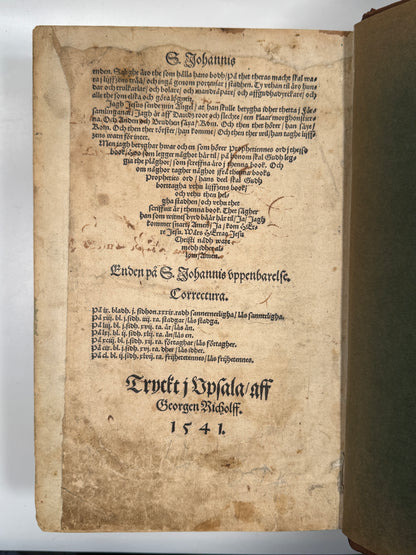 S. Johannis
enden. Salighe äro the som hålla hans bodh/ på thet theras macht skal wa-
ra j lijffzens trää/ och ingå genom portanar j stadhen. Ty vthan til äro hun-
dar och trulkarlar/ och bolare/ och mandråpare/ och affgudhadyrckare/ och
alle the som elska och göra lögnen.
Jagh Jesus sende min Ängel/ at han skulle betygha idher thetta j För-
samlinganar/ Jagh är aff Dauidz root och slechte/ een klaar morghonstier-
na. Och Anden och Brudhen säya/ Kom. Och then thet hörer/ han säye/
Kom. Och then ther törster/ han komme/ Och then ther wil/ han taghe lijff-
zens watn förvtten.
Men jagh betyghar hwar och en som hörer Prophetinnes ord j thesso
book/ Hoo som legger någhot här til/ på honom skal Gudh leg-
gia the plåghor/ som screffna äro j thenna book. Och
om någhor tagher någhot ifrå thenna books
Prophetijs ord/ hans deel skal Gudh
borttagha vthu lijffzens book/
och vthu then hel-
gha stadhen/ och vthu thet
scriffuit är j thenna book. Thet sägher
han som witnesbyrd bäär här til/ Ja/ Jagh
kommer snart/ Amen/ Ja/ kom HEr-
re Jesu. Wårs HErras Jesu
Christi nådh ware
medh idher al-
lom/ Amen.
Enden på S. Johannis vppenbarelse.
Correctura.
På ix. bladh. j. sidhon. xxxix. radh sannerneligha/ läs sannerligha.
På xiij. bl. j. sidh. iij. ra. stadgar/ läs stadga.
På liij. bl. j. sidh. xvij. ra. är/ läs än.
På lxj. bl. ij. sidh. iij. ra. än/ läs en.
På xciij. bl. j. sidh. xij. ra. förtaghar/ läs förtagher.
På cix. bl. j. sidh. xij. ra. dher/ läs idher.
På cl. bl. ij. sidh. xlvij. ra. frijhetennes/ läs frijhetennes.
Tryckt j Vpsala/ aff
Georgen Richolff.
1541.